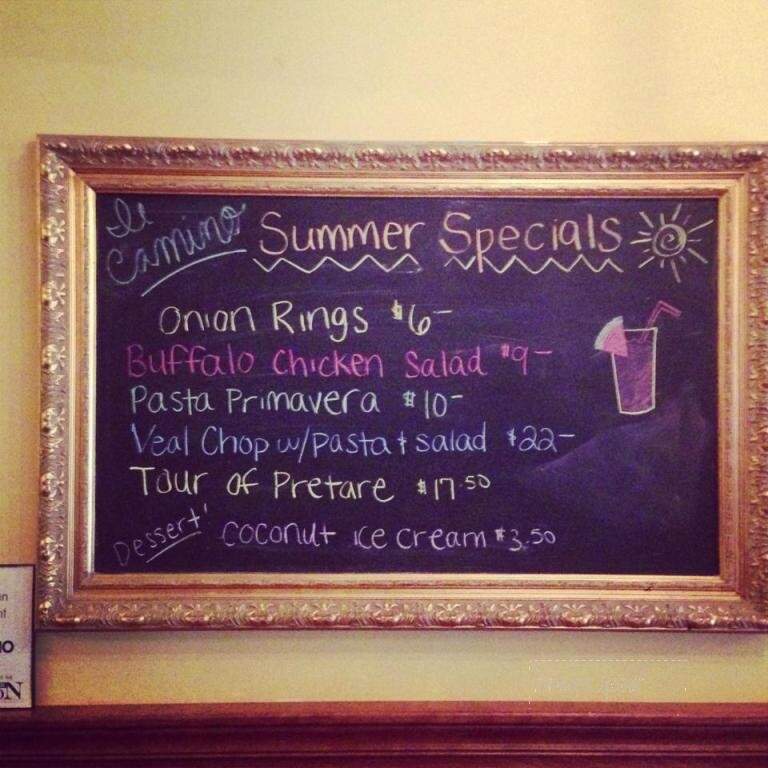 Il Camino
Summer Specials
Onion Rings $6-
Buffalo Chicken Salad $9-
Pasta Primavera $10-
Veal Chop w/pasta & salad $22-
Tour of Pretare $17.50
Dessert' coconut ice cream $3.50